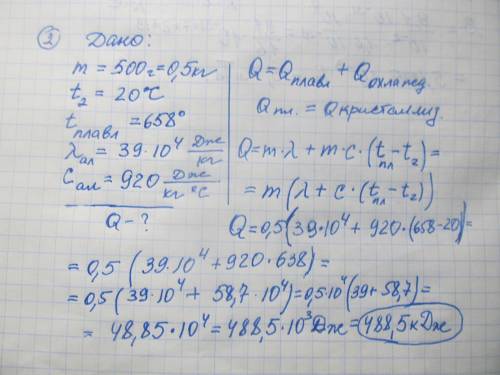 ② Дано:
m = 500г = 0,5кг
t₂ = 20°C
t плавл = 658°
λал = 39·10⁴ Дж/кг
Cал = 920 Дж/кг °C
Q - ?
Q = Qплавл + Qохлажд.
Qпл. = Qкристаллиз.
Q = m·λ + m·c·(tпл - t₂) =
= m(λ + c·(tпл - t₂))
Q = 0,5(39·10⁴ + 920·(658-20)) =
= 0,5 (39·10⁴ + 920·638) =
= 0,5(39·10⁴ + 58,7·10⁴) = 0,5·10⁴(39 + 58,7) =
= 48,85·10⁴ = 488,5·10³ Дж = 488,5 кДж